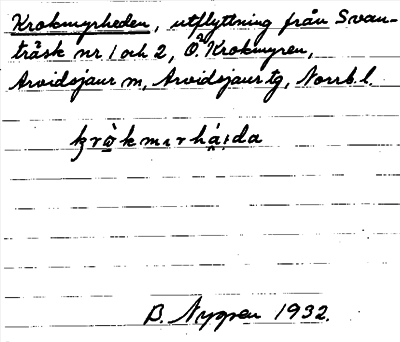 Krokmyrheden, utflyttning från Svan-
träsk nr 1 och 2, Ö. Krokmyren,
Arvidsjaur sn, Arvidsjaur tg, Norrb. l.
B. Nygren 1932.